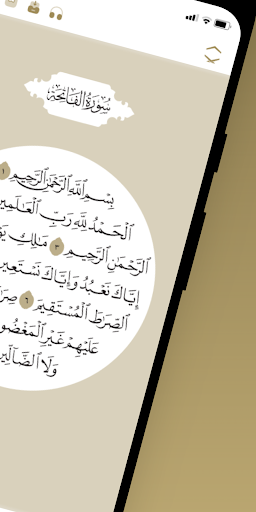 سُورَةُ الْفَاتِحَةِ
بِسْمِ اللَّهِ الرَّحْمَٰنِ الرَّحِيمِ ١
الْحَمْدُ لِلَّهِ رَبِّ الْعَالَمِينَ
الرَّحْمَٰنِ الرَّحِيمِ ٣ مَالِكِ
إِيَّاكَ نَعْبُدُ وَإِيَّاكَ نَسْتَعِينُ
الصِّرَاطَ الْمُسْتَقِيمَ ٦
عَلَيْهِمْ غَيْرِ الْمَغْضُوبِ
وَلَا الضَّالِّينَ